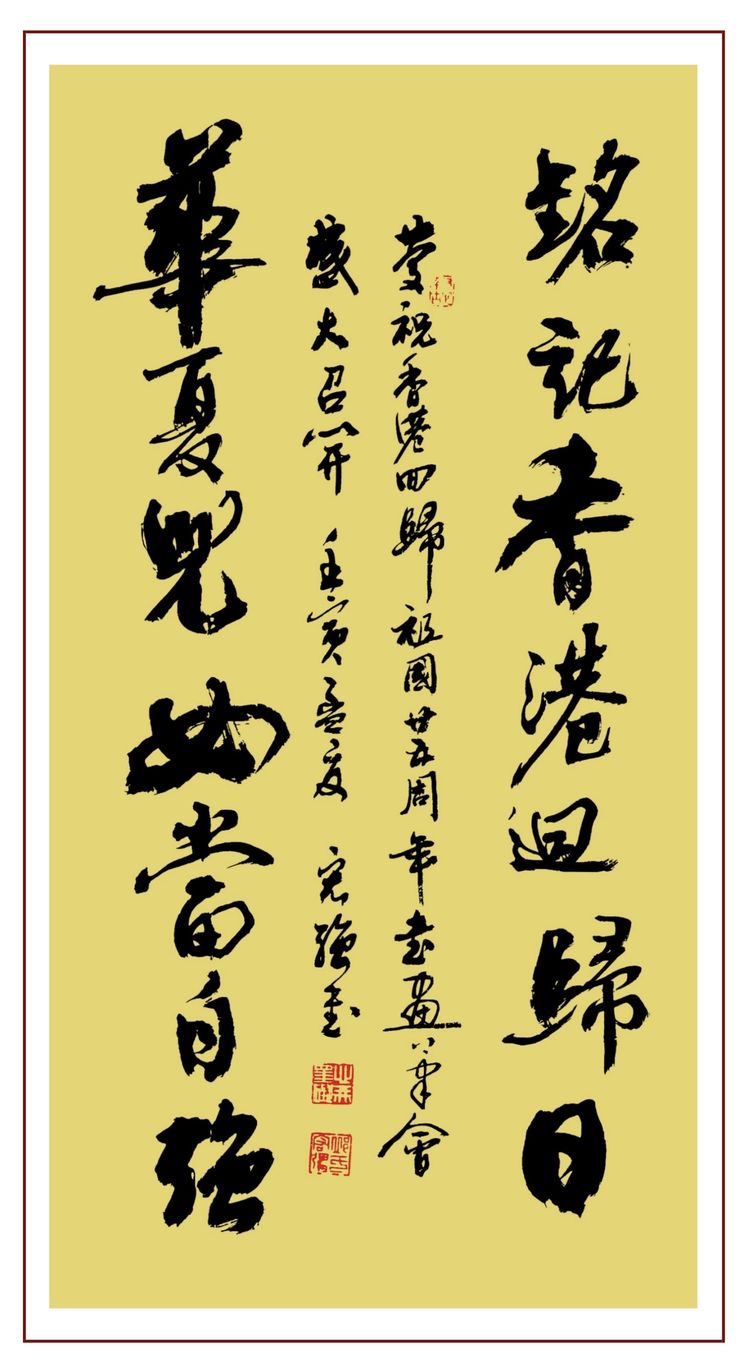 銘記香港迴歸日
慶祝香港回歸祖國廿五周年書畫筆會
盛大召開 壬寅孟夏 宏強書
華夏兒女當自強